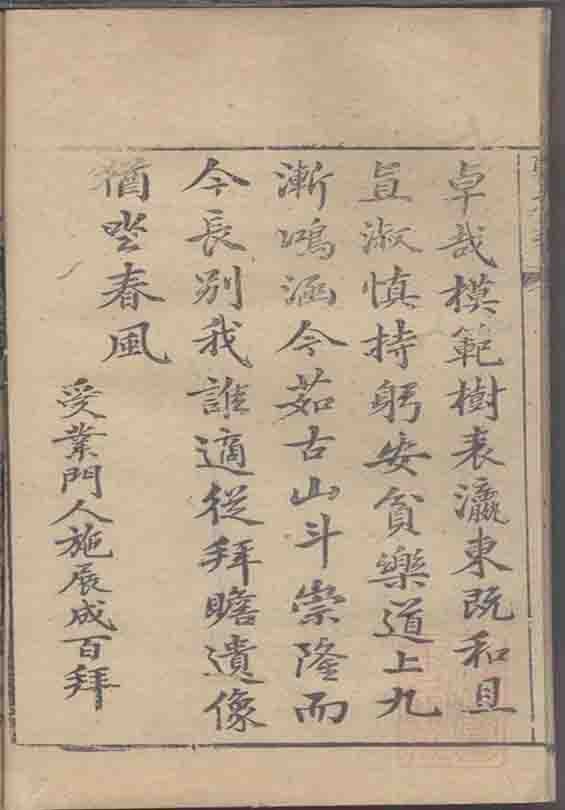 卓哉模範樹表瀛東既和且
且淑慎持躬安貧樂道上九
漸鴻涵今茹古山斗崇隆而
今長別我誰適從拜瞻遺像
猶坐春風
受業門人施展成百拜